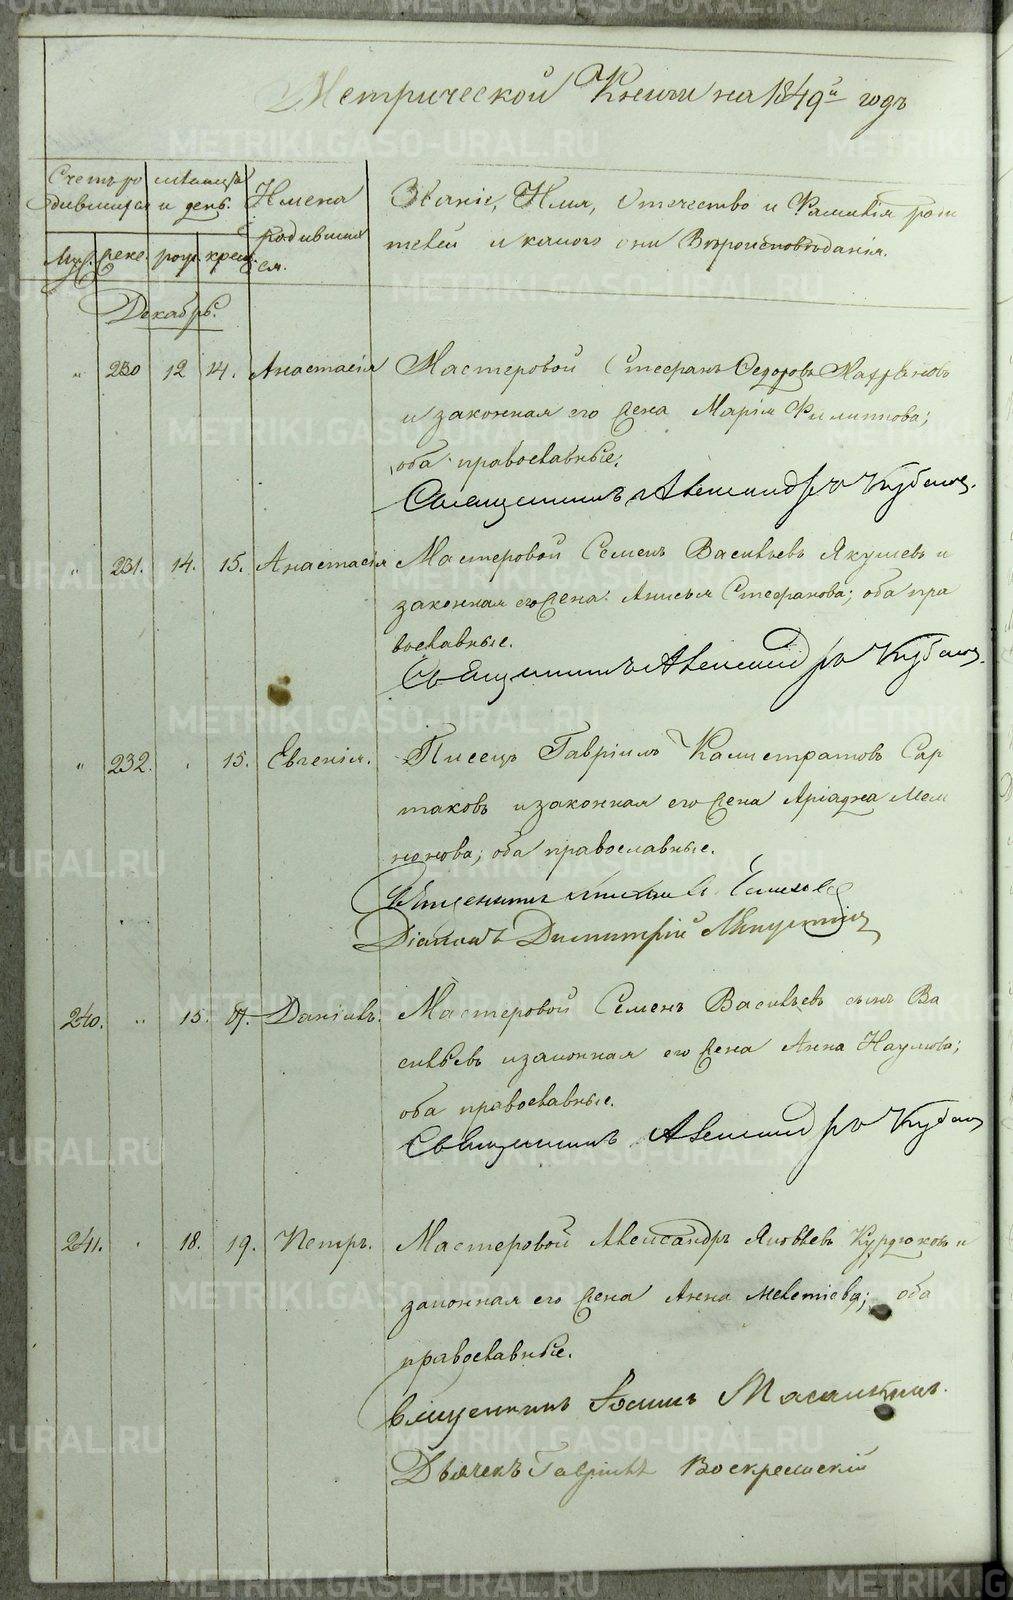 Метрической Книги на 1849й годъ
Счетъ ро
дившихся
мѣсяцъ
и день.
Имена
родивших
ся.
Званіе, Имя, Отечество и Фамилія роди
телей и какого они Вѣроисповѣданія.
Муж. женс. рож. крещ.
Декабрь.
" 230 12 14. Анастасія Мастеровой Стефанъ Федоровъ
и законная его жена Марія Филиппова;
оба православные.
Священникъ Александръ
" 231. 14. 15. Анастасія Мастеровой Семенъ Васильевъ Якушевъ и
законная его жена Анисья Стефанова; оба пра
вославные.
Священникъ Александръ
" 232. . 15. Евгенія. Писецъ Гавріилъ Калистратовъ Сар
таковъ и законная его жена Аріадна Мем
нонова; оба православные.
Священникъ
Діаконъ Димитрій
240. " 15. 17. Даніилъ. Мастеровой Семенъ Васильевъ сынъ Ва
сильевъ и законная его жена Анна Наумова;
оба православные.
Священникъ Александръ
241. . 18. 19. Петръ. Мастеровой Александръ Яковлевъ Курдюковъ и
законная его жена Анна Мелетіева; оба
православные.
Священникъ Іоаннъ
Дьячекъ Гавріилъ Воскресенскій
METRIKI.GASO-URAL.RU